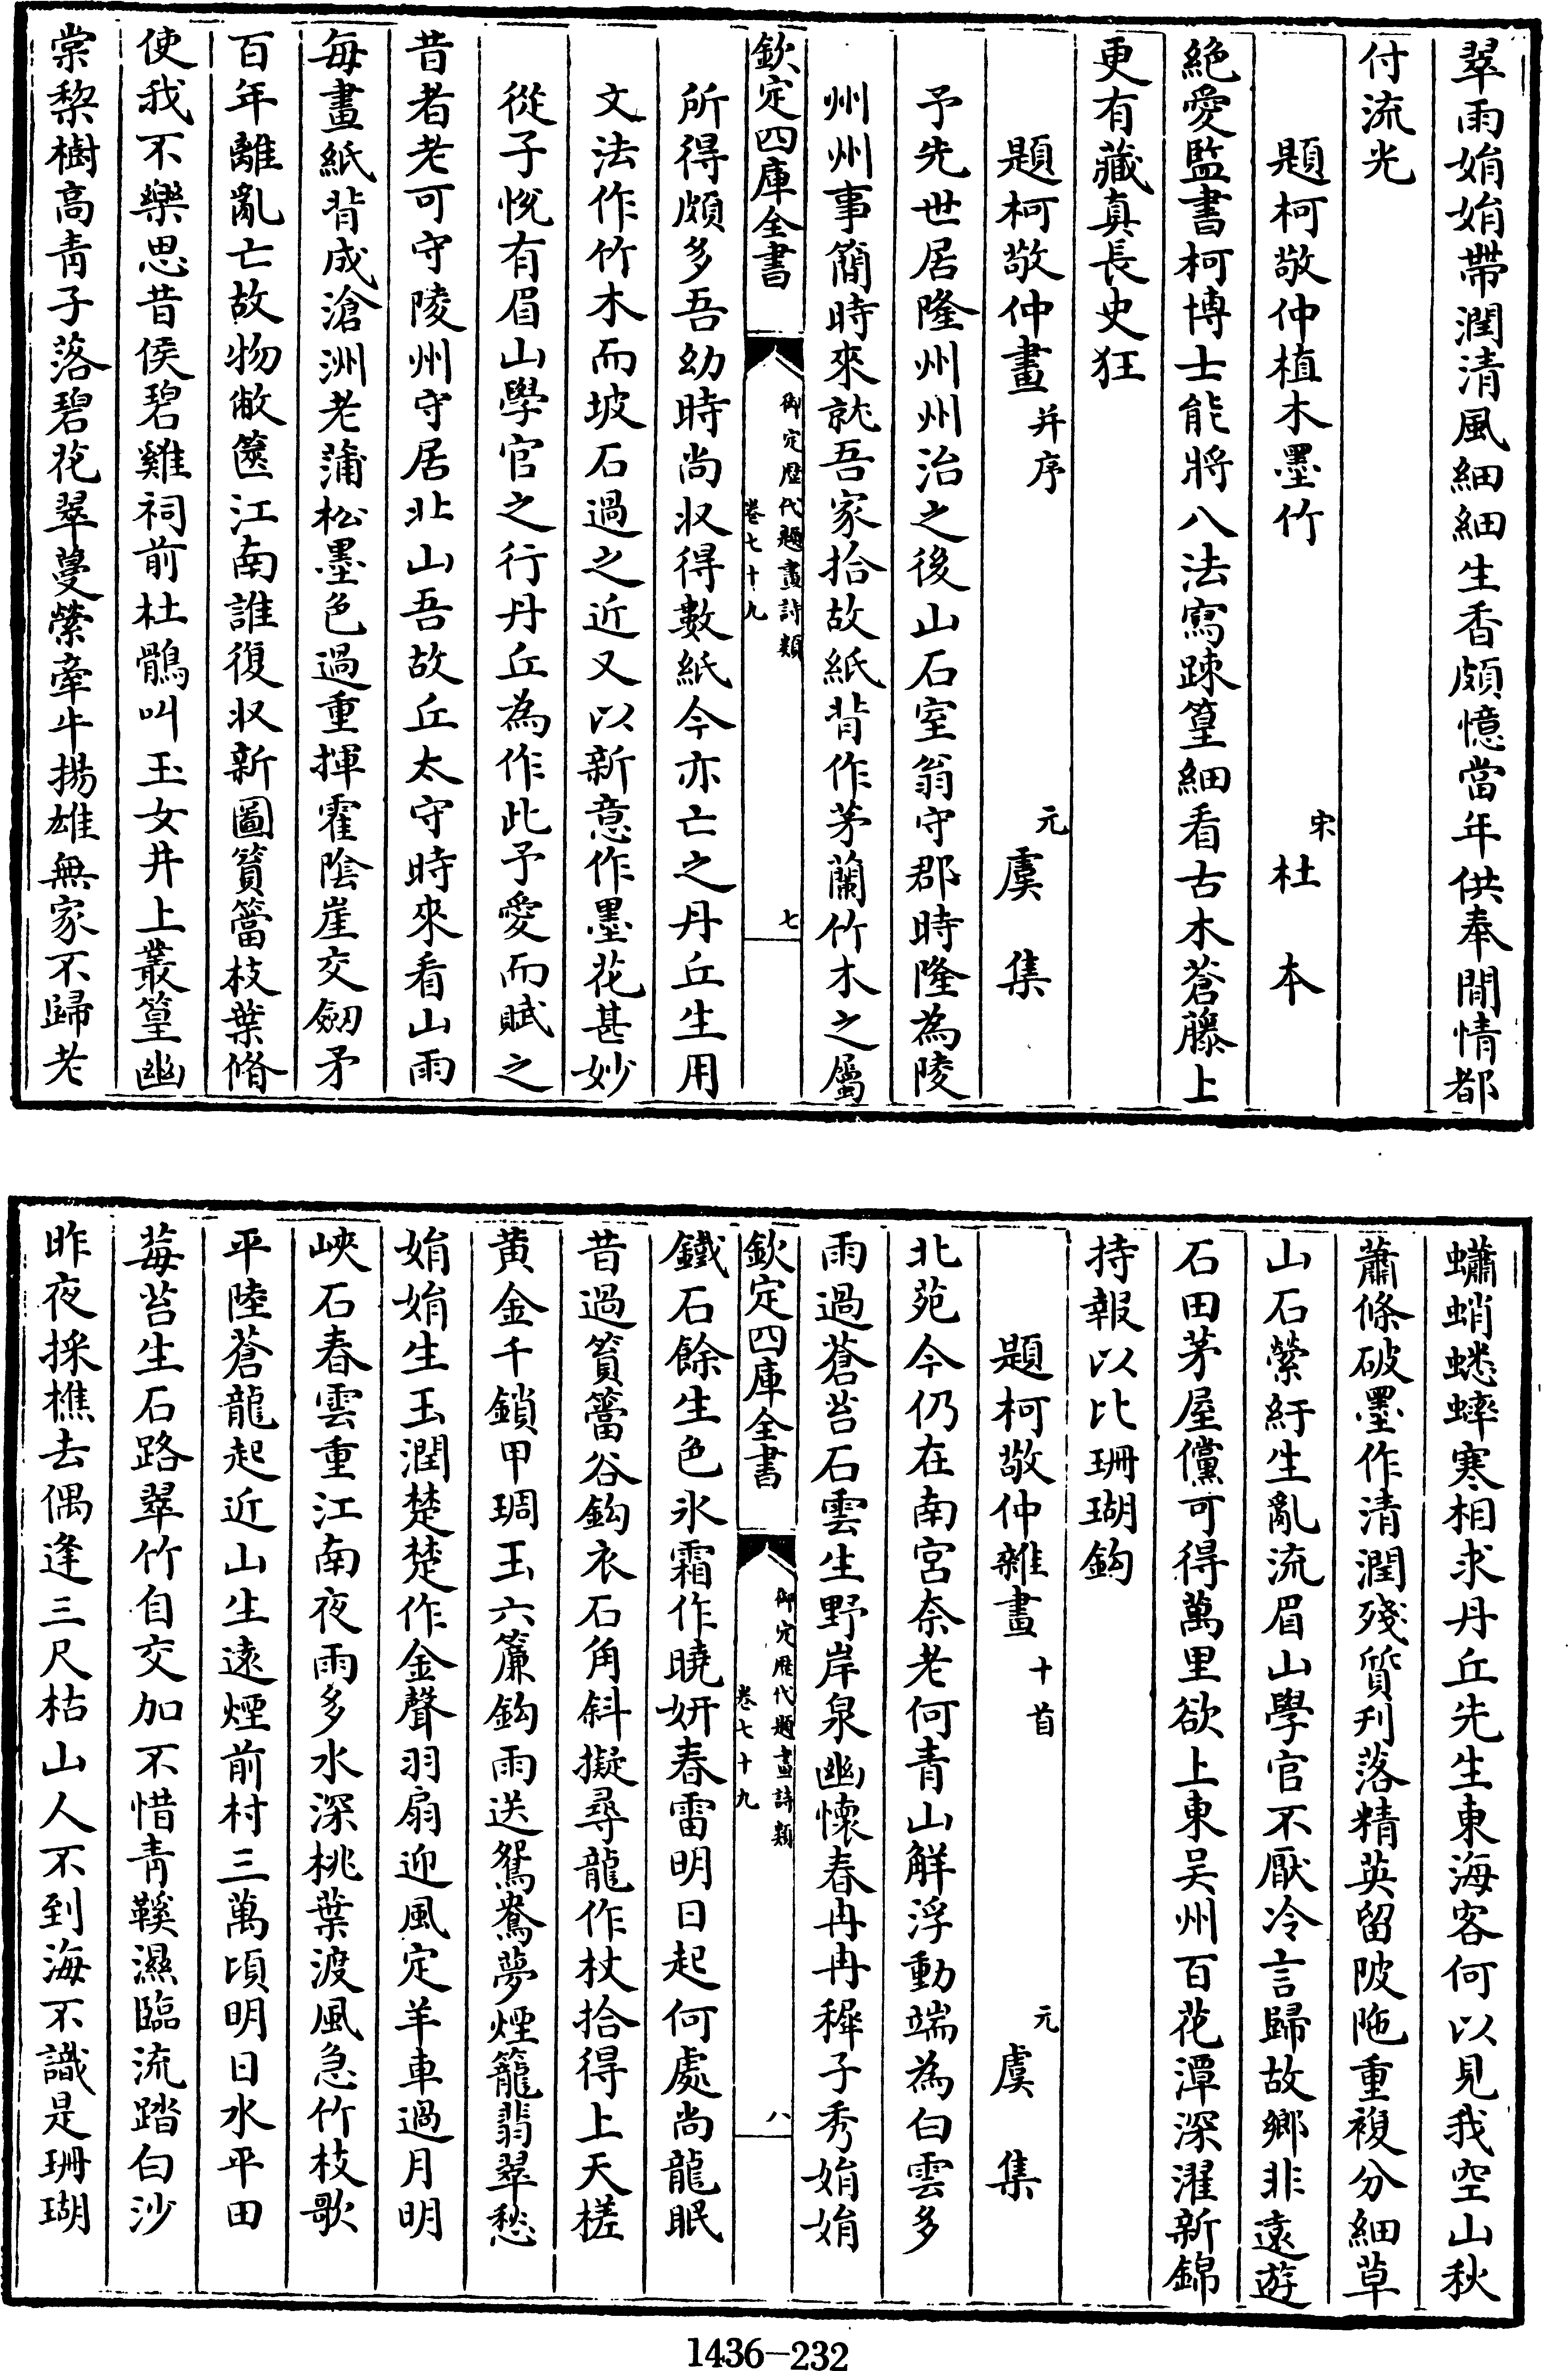 翠雨娟娟帶潤清風細細生香頗憶當年供奉閒情都
付流光
題柯敬仲植木墨竹 宋 杜本
絶愛監書柯博士能將八法寫踈篁細看古木蒼藤上
更有藏真長史狂
題柯敬仲畫 并序 元 虞集
予先世居隆州州治之後山石室翁守郡時隆為陵
州州事簡時來就吾家拾故紙背作茅蘭竹木之屬
欽定四庫全書 御定歴代題畫詩類 卷七十九 七
所得頗多吾幼時尚収得數紙今亦亡之丹丘生用
文法作竹木而坡石過之近又以新意作墨花甚妙
從子悅有眉山學官之行丹丘為作此予愛而賦之
昔者老可守陵州守居北山吾故丘太守時來看山雨
每畫紙背成滄洲老蒲松墨色過重揮霍陰崖交劒矛
百年離亂亡故物敝篋江南誰復収新圖篔簹枝葉脩
使我不樂思昔侯碧雞祠前杜鵑叫玉女井上叢篁幽
棠棃樹高青子落碧花翠蔓縈牽牛揚雄無家不歸老
蠨蛸蟋蟀寒相求丹丘先生東海客何以見我空山秋
蕭條破墨作清潤殘質刋落精英留陂陁重複分細草
山石縈紆生亂流眉山學官不厭冷言歸故鄉非遠遊
石田茅屋儻可得萬里欲上東吳州百花潭深濯新錦
持報以比珊瑚鈎
題柯敬仲雜畫 十首 元 虞集
北苑今仍在南宮奈老何青山解浮動端為白雲多
雨過蒼苔石雲生野岸泉幽懷春冉冉穉子秀娟娟
欽定四庫全書 御定歴代題畫詩類 卷七十九 八
鐵石餘生色氷霜作曉妍春雷明日起何處尚龍眠
昔過篔簹谷鈎衣石角斜擬尋龍作杖拾得上天槎
黄金千鎖甲琱玉六簾鈎雨送鴛鴦夢煙籠翡翠愁
娟娟生玉潤楚楚作金聲羽扇迎風定羊車過月明
峽石春雲重江南夜雨多水深桃葉渡風急竹枝歌
平陸蒼龍起近山生遠煙前村三萬頃明日水平田
莓苔生石路翠竹自交加不惜青鞵濕臨流踏白沙
昨夜採樵去偶逢三尺枯山人不到海不識是珊瑚
1436-232